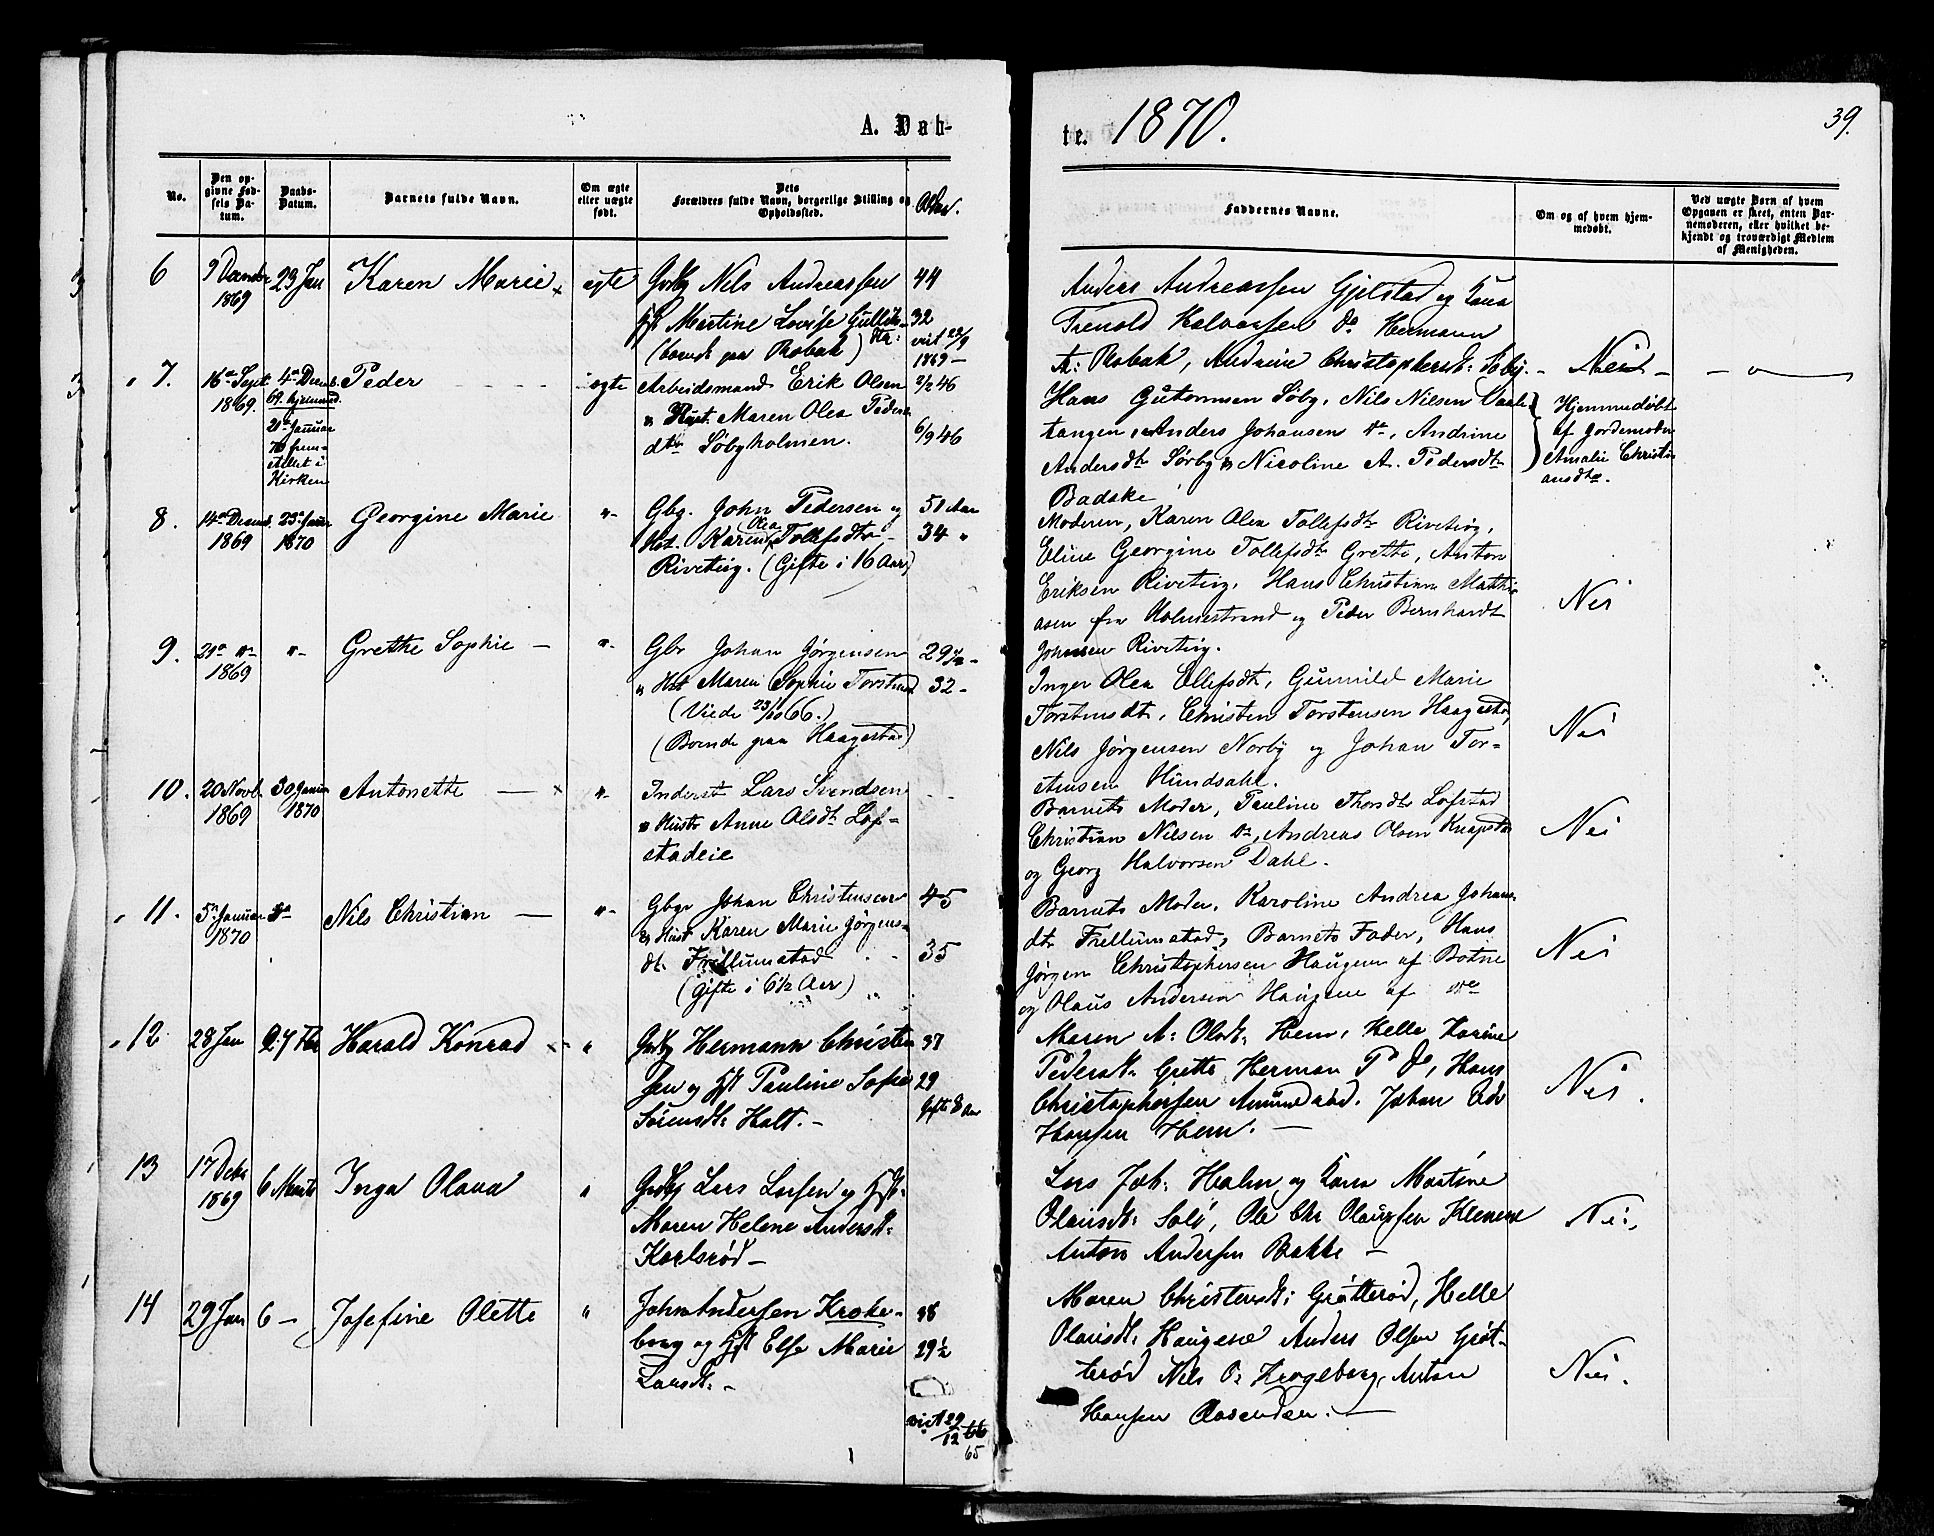 A. Døb-
te. 1870.
39.
No.
Den op-
givne Fød-
sels Da-
tum.
Daabs-
Datum.
Barnets fulde Navn.
Om ægte
eller uægte
født.
Dets
Forældres fulde Navn, borgerlige Stilling og
Opholdssted.
Alder.
Faddernes Navne.
Om og af hvem hjem-
medøbt.
Ved uægte Børn af hvem
Opgaven er skeet, enten Bar-
nemoderen, eller hvilket be-
kjendt og troværdigt Medlem
af Menigheden.
6
9 Decembr
1869
23 Jan
Karen Marie
ægte
Grdbg Nils Andreassen
Hst Martine Lovise Gulliks-
(boende paa Robak)
44
32
viet 22/9
1869 -
Anders Andreassen Gjelstad og Kona
Halvorsen Do Hermann
A: Robak, Andrine Christophersdt: Søby.
Nei
7.
16de Sept.
1869.
4de Decemb.
69. hjemmed.
21de Januar
70 frem-
stillet i
Kirken
Peder
ægte
Arbeidsmand Erik Olsen
og Hust. Maren Olea Peders
dtr Søbyholmen.
2/2 46
6/9 46
Hans Gutormsen Søby, Nils Nilsen Vaale-
tangen, Anders Johansen do, Andrine
Andersdt Sørby og Nicoline A. Pedersdt
Badske
Hjemmedøbt
af Jordemoder
Amalie Christi
ansdtr.
8.
14de Decemb.
1869
23de Januar
1870
Georgine Marie
"
Gbg. John Pedersen og
Hst. Karen Olea Tollefsdtr
Rivetog. (Gifte i 16 Aar)
51 Aar
34 "
Moderen, Karen Olea Tollefsdtr Rivetog,
Eline Georgine Tollefsdtr Grette, Anton
Eriksen Rivetog, Hans Christian Mathi-
asen fra Holmestrand og Peder Bernhardt
Johnsen Rivetog.
Nei
9.
21de "
1869
"
Grethe Sophie
"
Gbr Johan Jørgensen
og Hst Maren Sophie Torstensd
(Viede 23/10 66.)
(Boende paa Haagestad)
29 1/2
32 -
Inger Olea Ellefsdt, Gunnild Marie
Torstensdt, Christen Torstensen Haagestad,
Nils Jørgensen Norby og Johan Tor-
stensen Hundsahl.
Nei
10.
20 Novb.
1869
30 Januar
1870
Antonette
"
Inderst Lars Svendsen
og Hustr Anne Olsdt Løf-
stadeie
Barnets Moder, Pauline Thorsdtr Løfstad
Christian Nilsen do, Andreas Olsen Knapstad
og Georg Halvorsen Dahl.
Nei
11.
5te Januar
1870
do
Nils Christian
"
Gbgr Johan Christensen
og Hust Karen Marie Jørgens-
dt. Frellumstad
(Gifte i 6 1/2 Aar)
45
35
Barnets Moder, Karoline Andrea Johans-
dt Frellumstad, Barnets Fader, Hans
Jørgen Christophersen Haugene af Botne
og Olaus Andersen Haugene af do
Nei
12
28 Jan
27 Fbr
Harald Konrad
"
Grdbg Hermann Christen
sen og Hst Pauline Sofie
Sørensdt: Holt. -
37
29
Gifte 8 Aar
Maren A: Olsdt: Hem, Helle Karine
Pedersdt. Grette Herman P Do, Hans
Christophersen Amundrød, Johan Edv
Hansen Hem. -
Nei.
13
17 Dcbr
1869
6 Marts
Inga Olava
"
Grdbg Lars Larsen og Hst:
Maren Helene Andersdt:
Karlsrød -
Lars Jak: Holm og Kona Martine
Olausdt: Solø, Ole Chr Olaussen Klevene
Anton Andersen Bakke -
Nei.
14
29 Jan
6 -
Josefine Olette
"
John Andersen Kroke-
borg og Hst Else Marie
Larsdt: -
38
29 1/2
viet 29/12 66
65
Maren Christensdt: Grøtterød, Helle
Olausdt: Haugene Anders Olsen Grøt-
terød Nils O: Krogeborg, Anton
Hansen Aasenden. -
Nei.